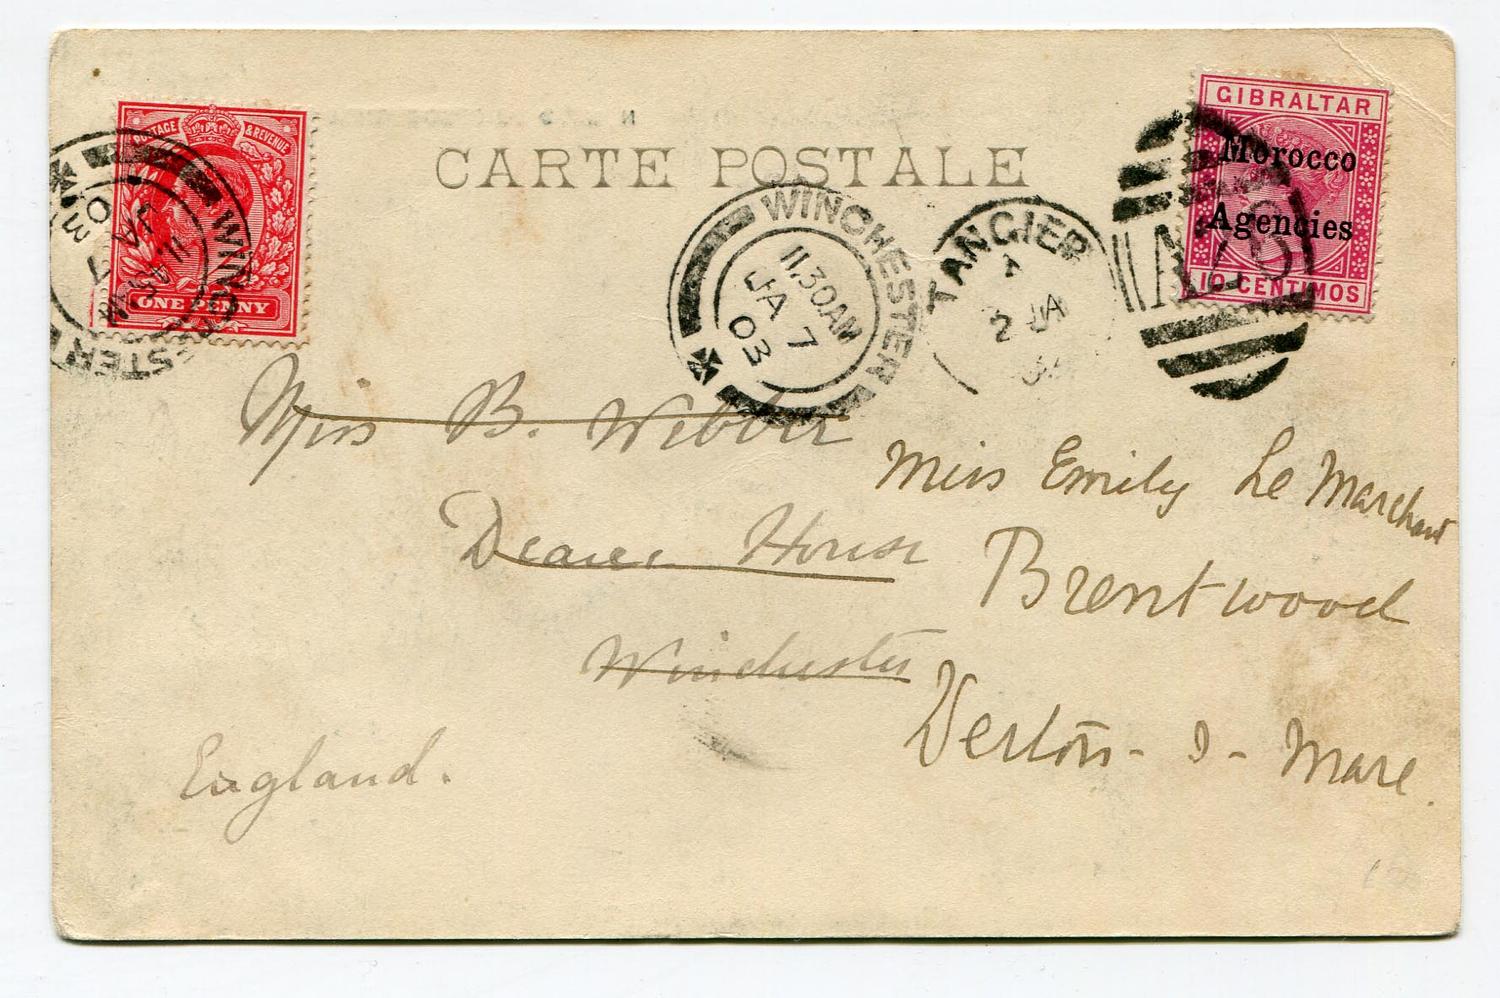 POSTAGE & REVENUE
ONE PENNY
WINCHESTER
11.30AM
JA 7
03
CARTE POSTALE
WINCHESTER
11.30AM
JA 7
03
TANGIER
A
2 JA
GIBRALTAR
Morocco
Agencies
10 CENTIMOS
A26
Miss B. Webber
Deane House
Winchester
England.
Miss Emily Le Marchant
Brentwood
Weston - S - Mare.